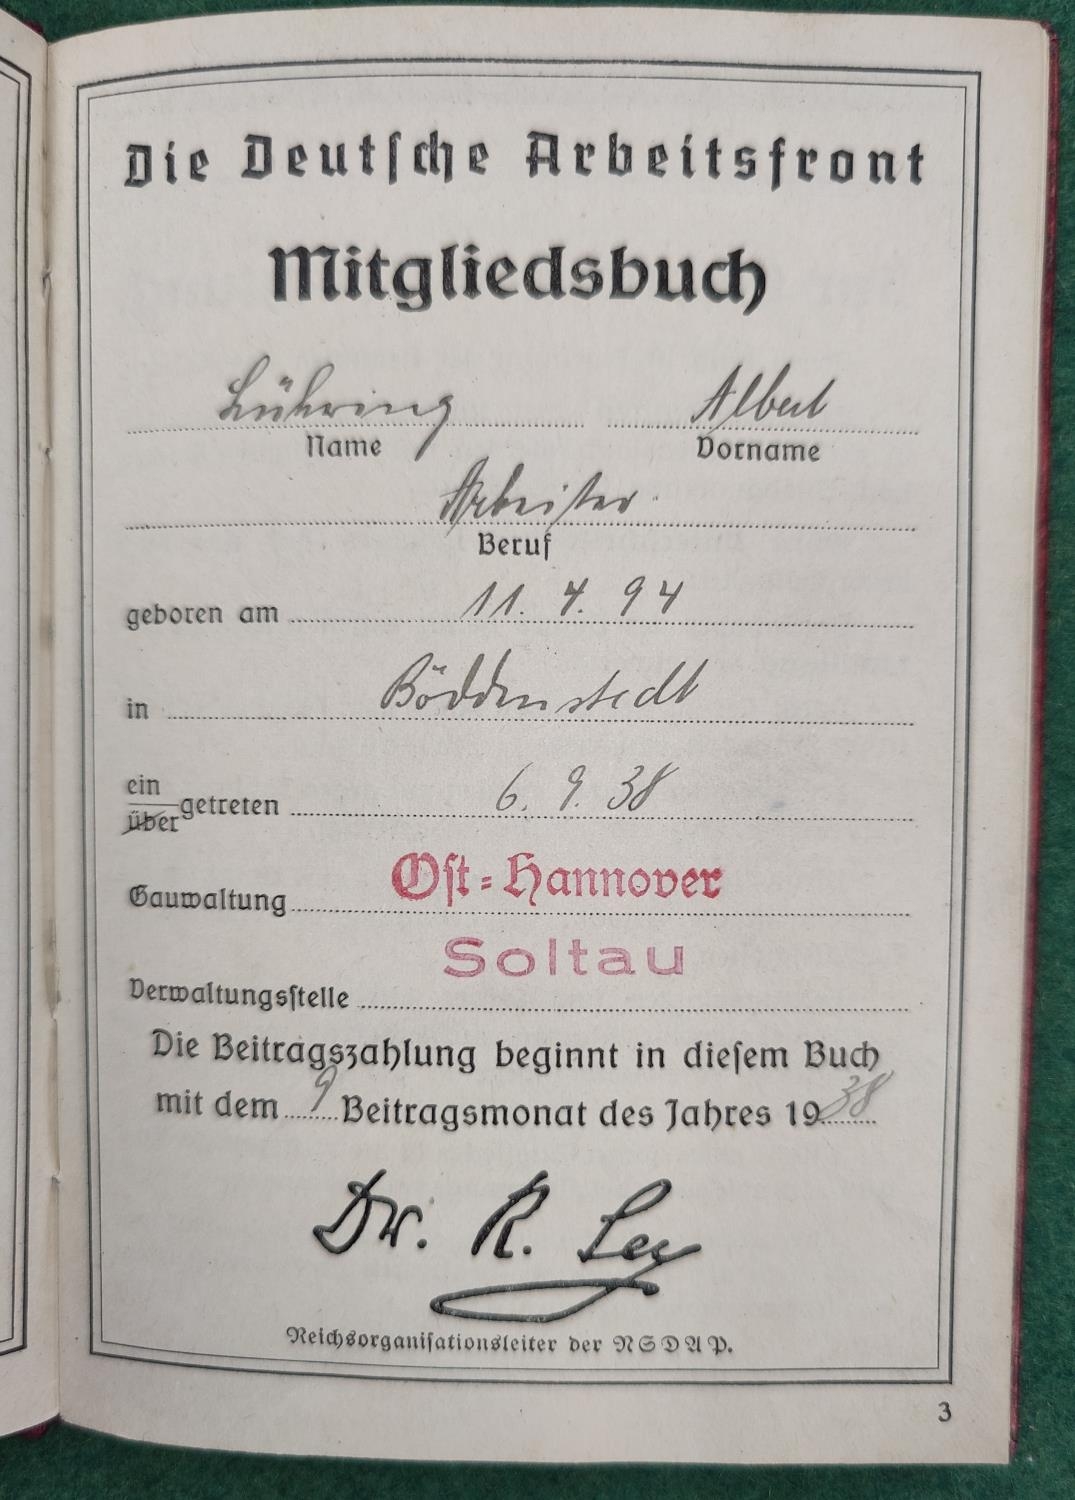 Die Deutsche Arbeitsfront
Mitgliedsbuch
Lühring Albert
Name Vorname
Arbeiter
Beruf
geboren am 11. 4. 94
in Böddenstedt
ein
über getreten 6. 9. 38
Gauwaltung Ost-Hannover
Soltau
Verwaltungsstelle
Die Beitragszahlung beginnt in diesem Buch
mit dem 9 Beitragsmonat des Jahres 1938
Dr. R. Ley
Reichsorganisationsleiter der NSDAP.
3